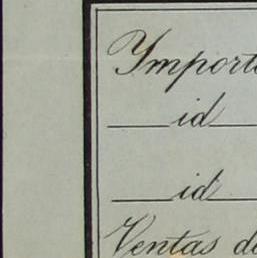 Importe
id
id
Ventas de